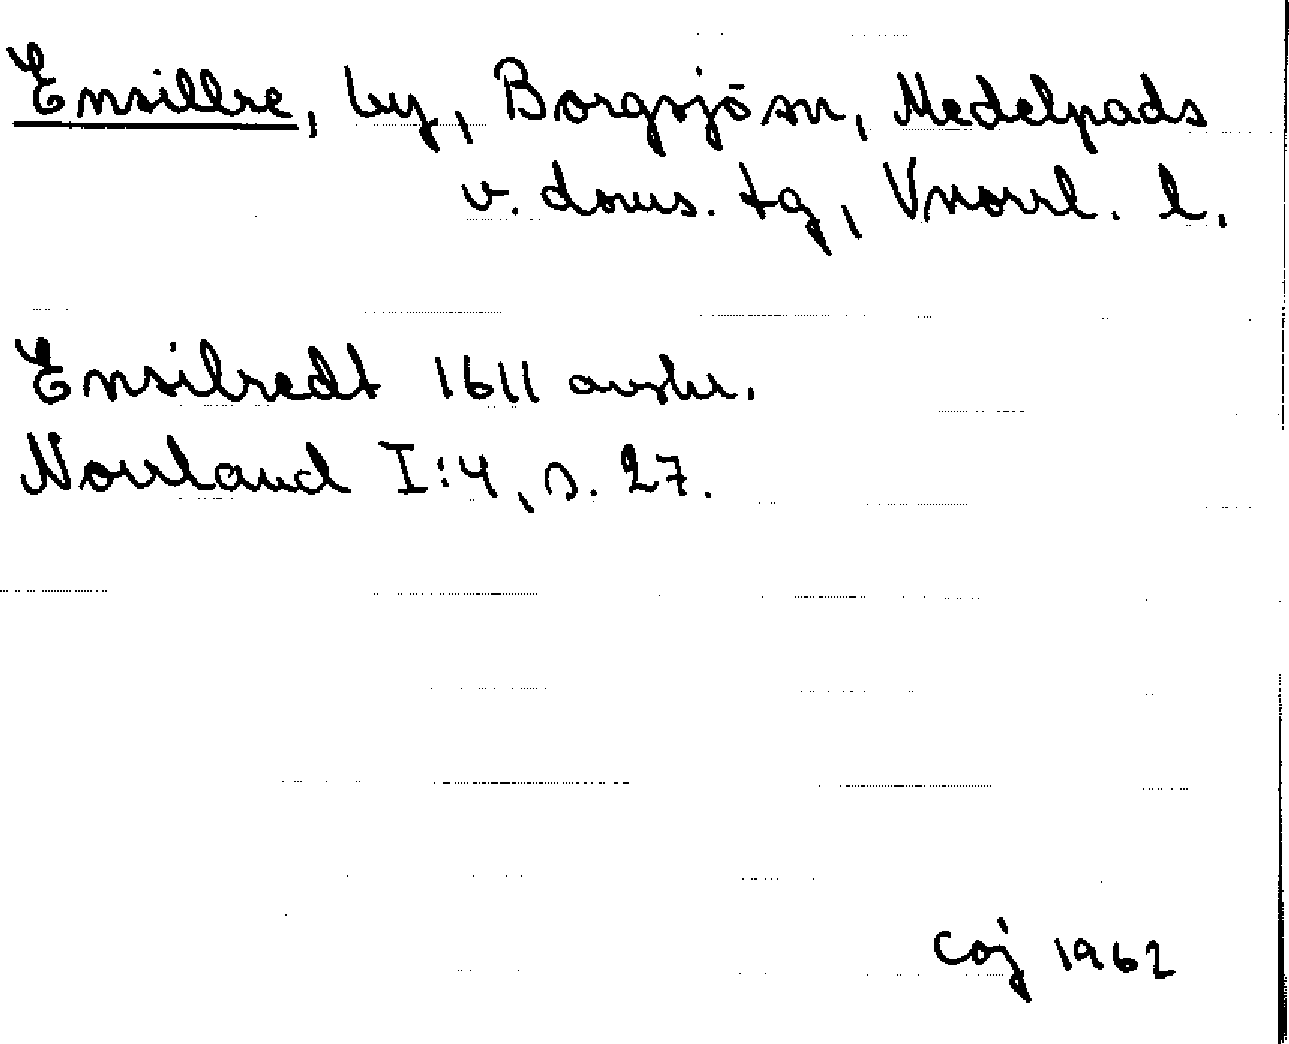 Ensillre, by, Borgsjö sn, Medelpads
v. doms. tg, Vnorrl. l.
Ensilredt 1611 avskr.
Norrland I:4, s. 27.
Coj 1962